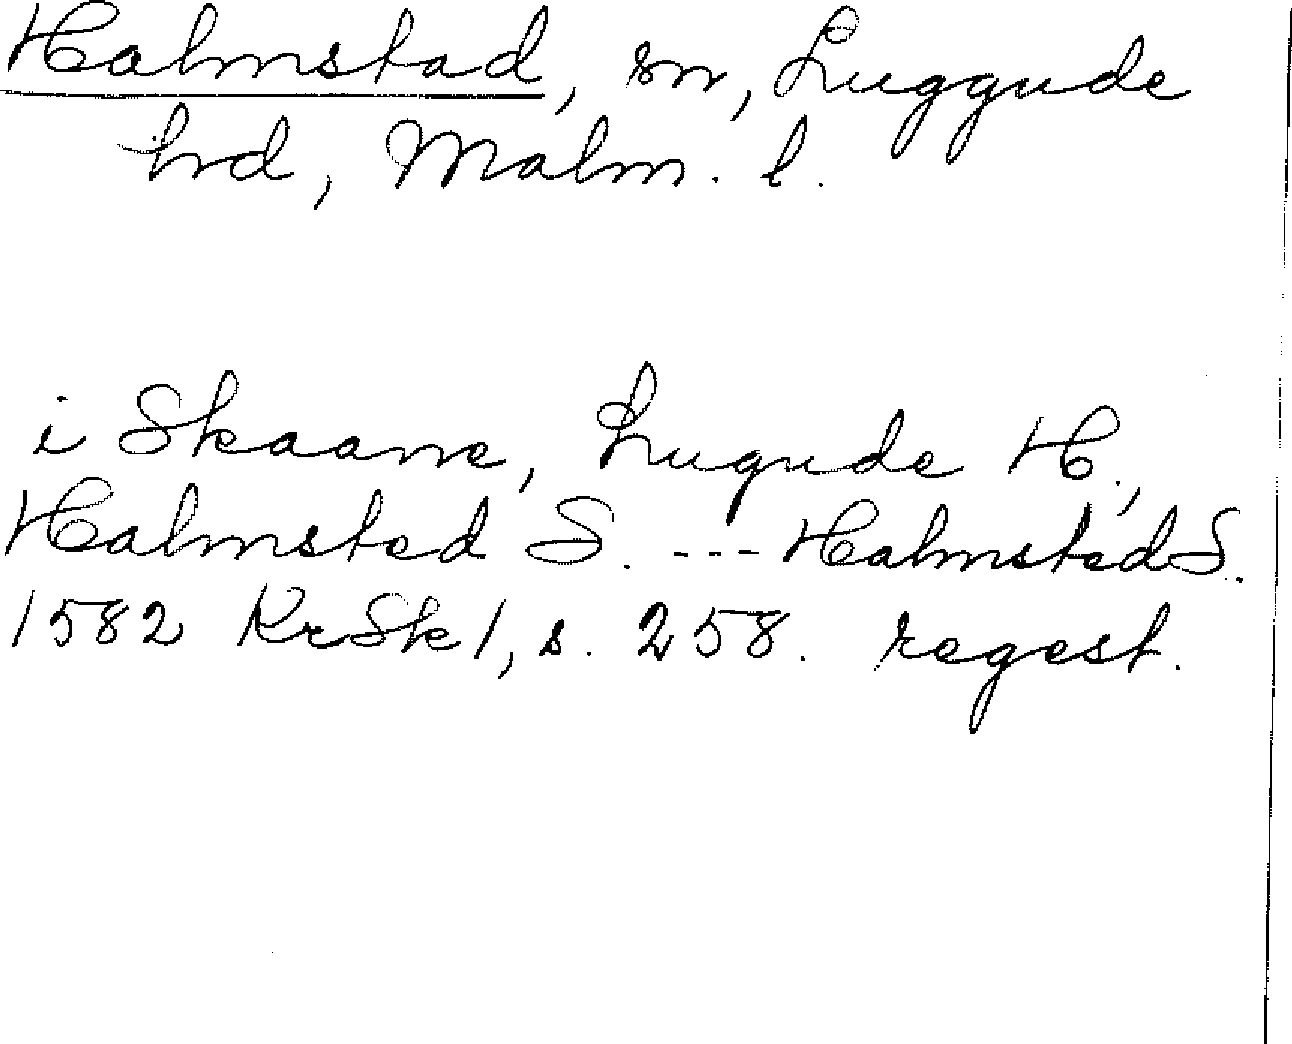 Halmstad, sn, Luggude
hd, Malm. l.
i Skaane, Lugude H.,
Halmsted S. --- Halmsted S.
1582 KrSk 1, s. 258. regest.